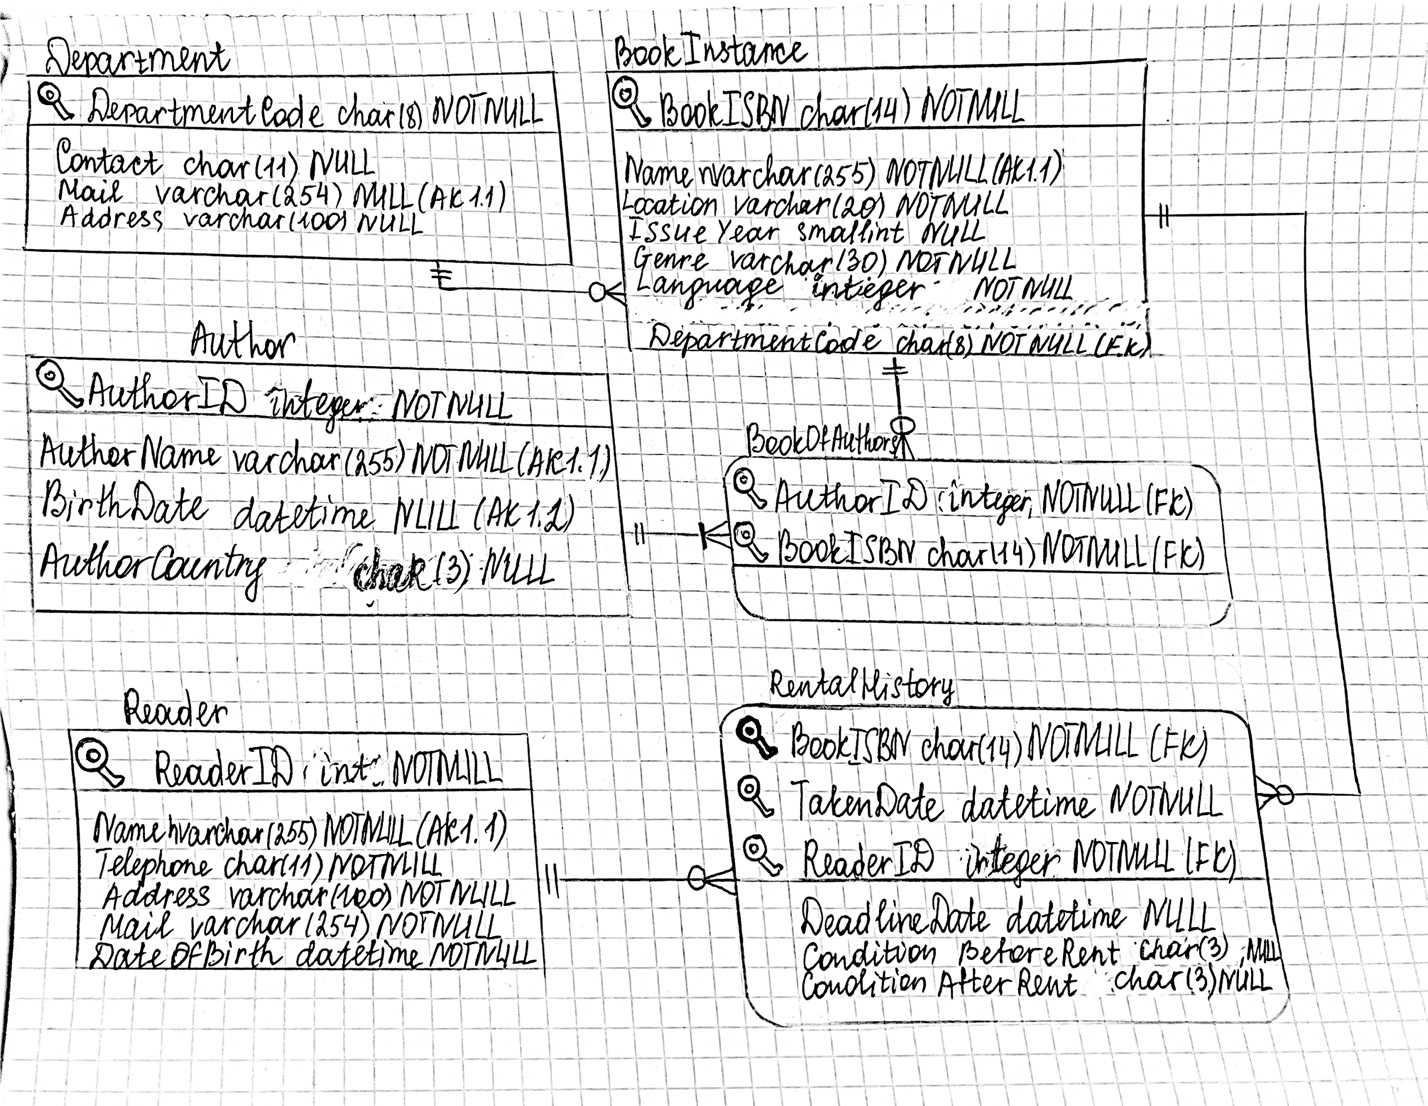 Department
DepartmentCode char(8) NOTNULL
Contact char(11) NULL
Mail varchar(254) NULL (AK1.1)
Address varchar(100) NULL
BookInstance
BookISBN char(14) NOTNULL
Name nvarchar(255) NOTNULL(AK1.1)
Location varchar(20) NOTNULL
IssueYear smallint NULL
Genre varchar(30) NOTNULL
Language integer NOTNULL
DepartmentCode char(8) NOTNULL (FK)
Author
AuthorID integer NOTNULL
AuthorName varchar(255) NOTNULL (AK1.1)
BirthDate datetime NULL (AK1.2)
AuthorCountry char(3) NULL
BookOfAuthors
AuthorID integer NOTNULL (FK)
BookISBN char(14) NOTNULL (FK)
Reader
ReaderID int NOTNULL
Name nvarchar(255) NOTNULL (AK1.1)
Telephone char(11) NOTNULL
Address varchar(100) NOTNULL
Mail varchar(254) NOTNULL
DateOfBirth datetime NOTNULL
RentalHistory
BookISBN char(14) NOTNULL (FK)
TakenDate datetime NOTNULL
ReaderID integer NOTNULL (FK)
DeadlineDate datetime NULL
Condition BeforeRent char(3) NULL
Condition AfterRent char(3) NULL